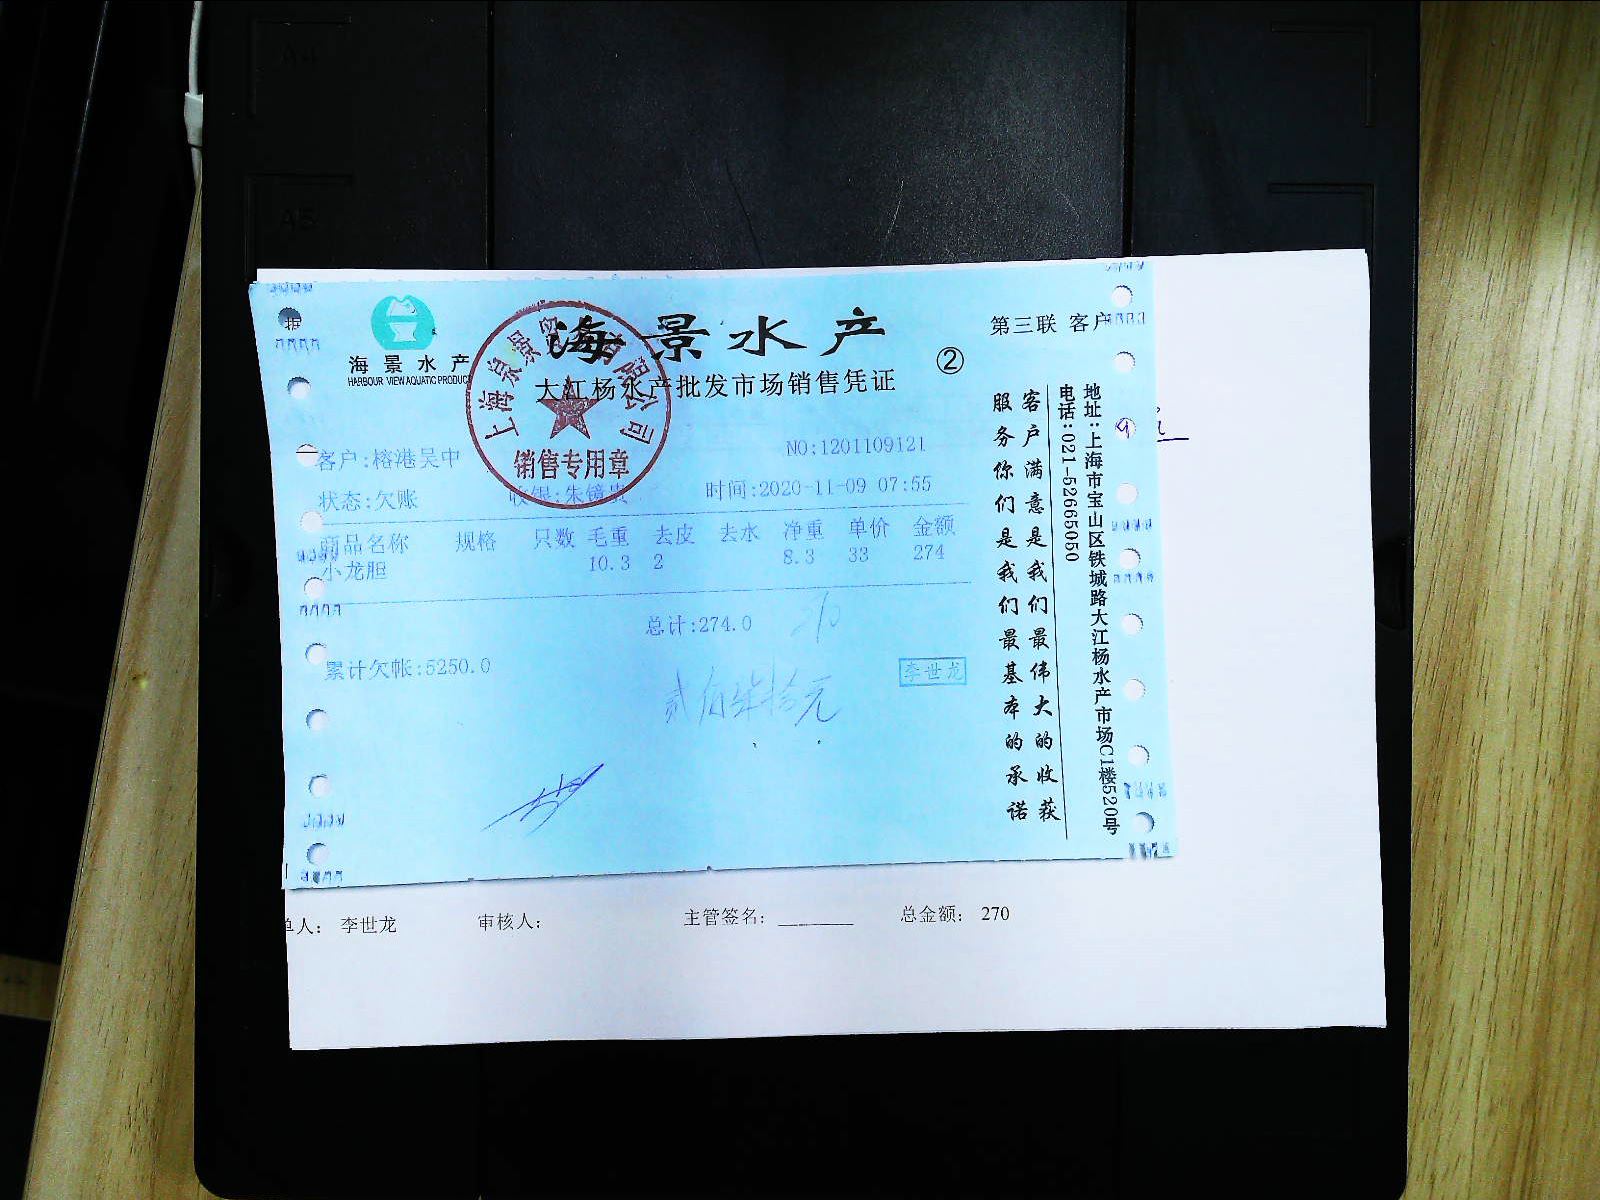 海景水产
HARBOUR VIEW AQUATIC PRODUCT
海景水产
大江杨水产批发市场销售凭证
②
第三联 客户
销售专用章
客户:榕港吴中
NO:1201109121
状态:欠账
收银:朱镜
时间:2020-11-09 07:55
商品名称 规格 只数 毛重 去皮 去水 净重 单价 金额
小龙胆 10.3 2 8.3 33 274
总计:274.0
270
累计欠帐:5250.0
李世龙
贰佰柒拾元
客户满意是我们最伟大的收获
服务你们是我们最基本的承诺
地址:上海市宝山区铁城路大江杨水产市场C1楼520号
电话:021-52665050
单人: 李世龙 审核人: 主管签名: 总金额: 270